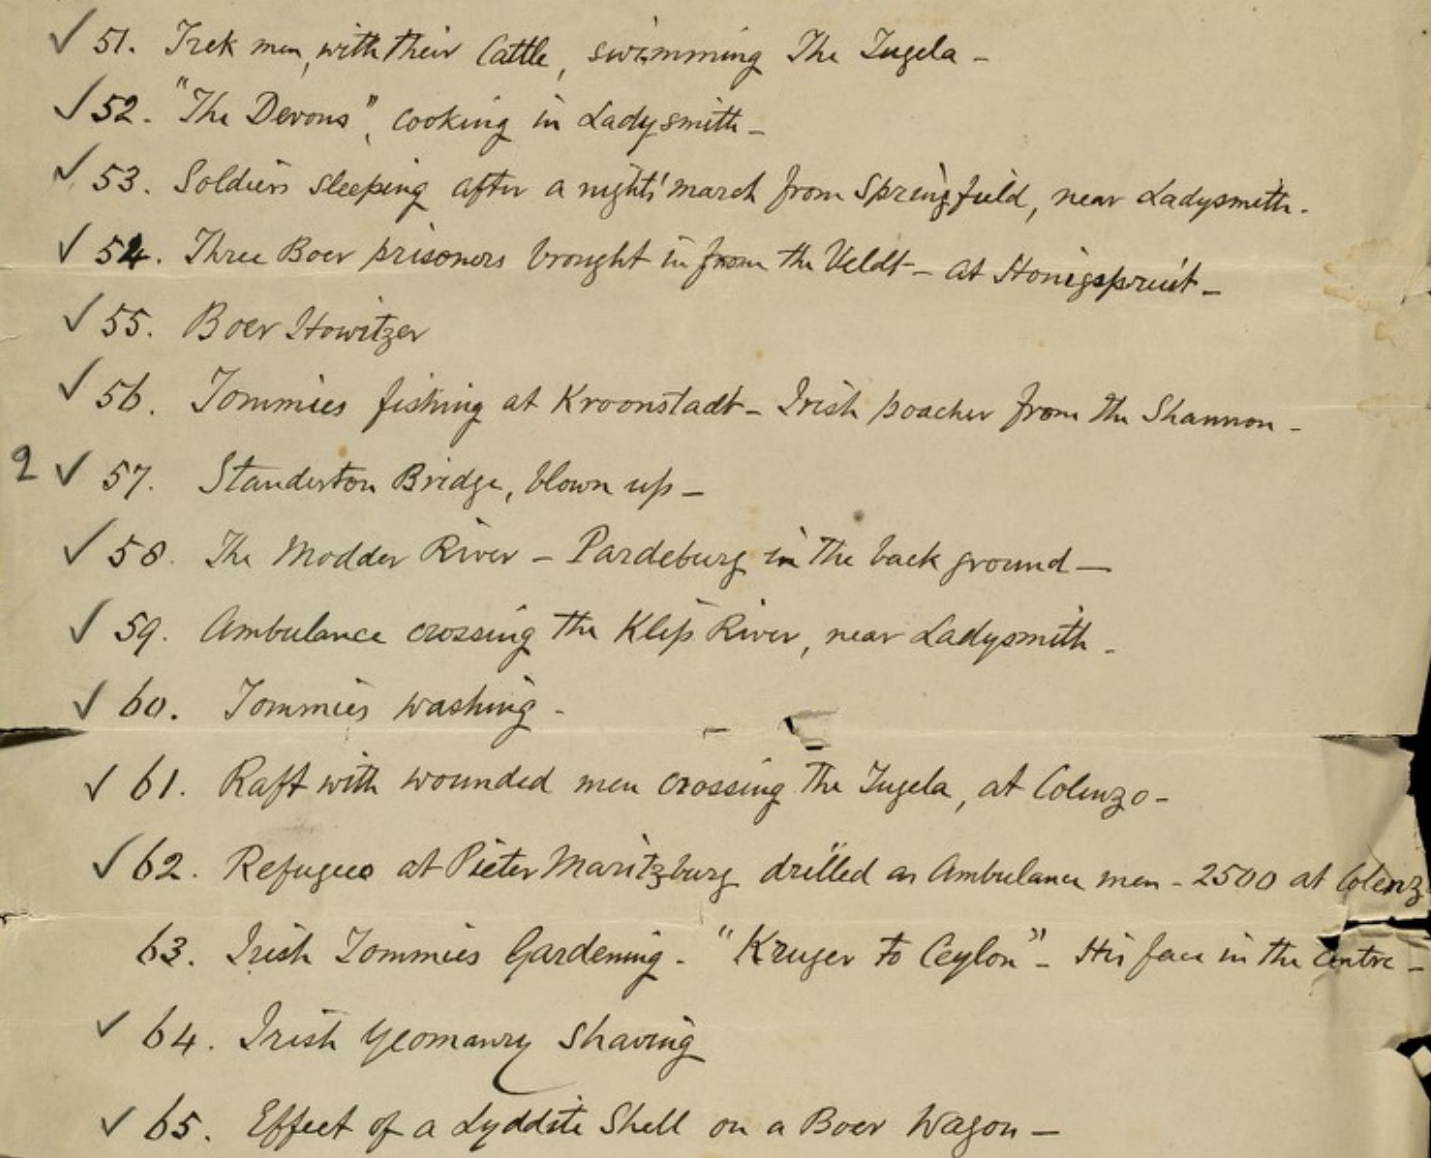 ✓ 51. Trek men, with their Cattle, swimming The Tugela -
✓ 52. "The Devons", cooking in Ladysmith -
✓ 53. Soldiers sleeping after a nights' march from Springfield, near Ladysmith.
✓ 54. Three Boer prisoners brought in from the Veldt - at Honigspruit -
✓ 55. Boer Howitzer
✓ 56. Tommies fishing at Kroonstadt - Irish poacher from the Shannon -
2 ✓ 57. Standerton Bridge, blown up -
✓ 58. The Modder River - Pardeburg in the back ground -
✓ 59. Ambulance crossing the Klip River, near Ladysmith -
✓ 60. Tommies washing -
✓ 61. Raft with wounded men crossing The Tugela, at Colenzo -
✓ 62. Refugees at Pieter Maritzburg drilled as Ambulance men - 2500 at Colenz
63. Irish Tommies Gardening - "Kruger to Ceylon" - His face in the Centre -
✓ 64. Irish Yeomanry Shaving
✓ 65. Effect of a Lyddite Shell on a Boer Wagon -